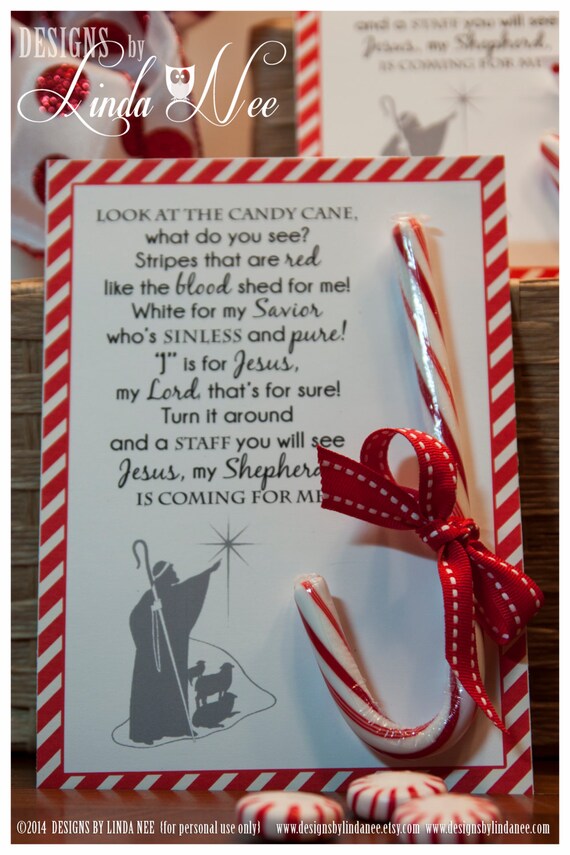 DESIGNS by
Linda Nee
and a STAFF you will see
Jesus, my Shepherd,
IS COMING FOR ME!
LOOK AT THE CANDY CANE,
what do you see?
Stripes that are red
like the blood shed for me!
White for my Savior
who's SINLESS and pure!
"J" is for Jesus,
my Lord, that's for sure!
Turn it around
and a STAFF you will see
Jesus, my Shepherd
IS COMING FOR ME
©2014 DESIGNS BY LINDA NEE {for personal use only} www.designsbylindanee.etsy.com www.designsbylindanee.com